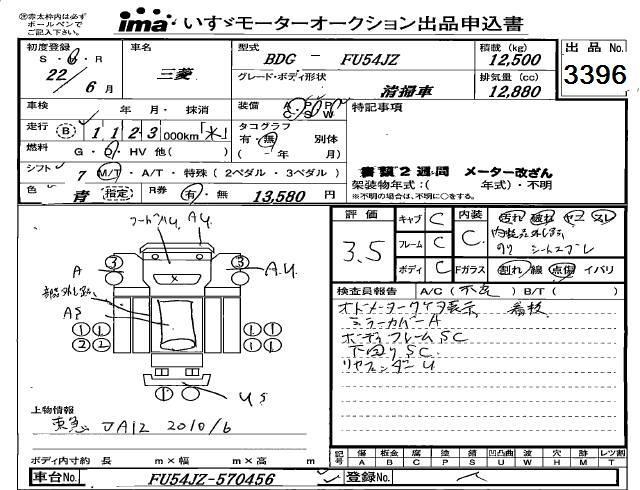 ㊟赤太枠内は必ず
ボールペンで
ご記入下さい。
ima いすゞモーターオークション出品申込書
初度登録
S・H・R
22/6月
車名
三菱
型式
BDG - FU54JZ
積載 (kg)
12,500
出品 No.
3396
グレード・ボディ形状
清掃車
排気量 (cc)
12,880
車検
年 月・抹消
装備
A P P W
C S W
特記事項
走行 B 1 1 2 3 000km「水」
タコグラフ
有・無 別体
( - 年 月)
燃料 G・D・HV 他( )
シフト 7 M/T・A/T・特殊(2ペダル・3ペダル)
書類2週間 メーター改ざん
架装物年式:( 年式)・不明
※不明の場合は、不明に○をする。
色 青 指定
R券 有・無
13,580 円
評価
3.5
キャブ C
フレーム C
ボディ C
内装 C
Fガラス
汚れ 破れ ヤコ スレ
内装品外し跡
のり シートスブレ
割れ・線 点傷・イバリ
フードハリ AU
A 3 3 A.U
部品外し跡
AS
1 1 1 1
2 2 1 1
1 1
US
検査員報告 A/C (不良) B/T ( )
オドメータータイヤ表示 看板
ミラーカバーA
ボディフレームSC
下回りSC
リヤフェンダーU
上物情報
東急 JA12 2010/6
ボディ内寸約 長 m×幅 m×高 m
記号
傷 板金 腐 塗 錆 凹凸曲 波 穴 跡 レツ割
A B C P S U W H M T
車台No. FU54JZ-570456
登録No.